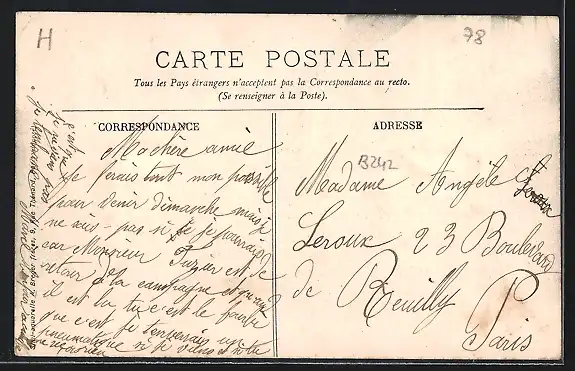 H
78
CARTE POSTALE
Tous les Pays étrangers n'acceptent pas la Correspondance au recto.
(Se renseigner à la Poste).
CORRESPONDANCE
ADRESSE
Ma chère amie
je ferais tout mon possible
pour venir dimanche mais je
ne sais pas si je pourrais
car Monsieur est de
retour à la campagne et quand
il est la tu c'est le
que c'est je t'enverrais un
pneumatique si je viens
B242
Madame Angèle
Leroux 23 Boulevard
de Reuilly
Paris